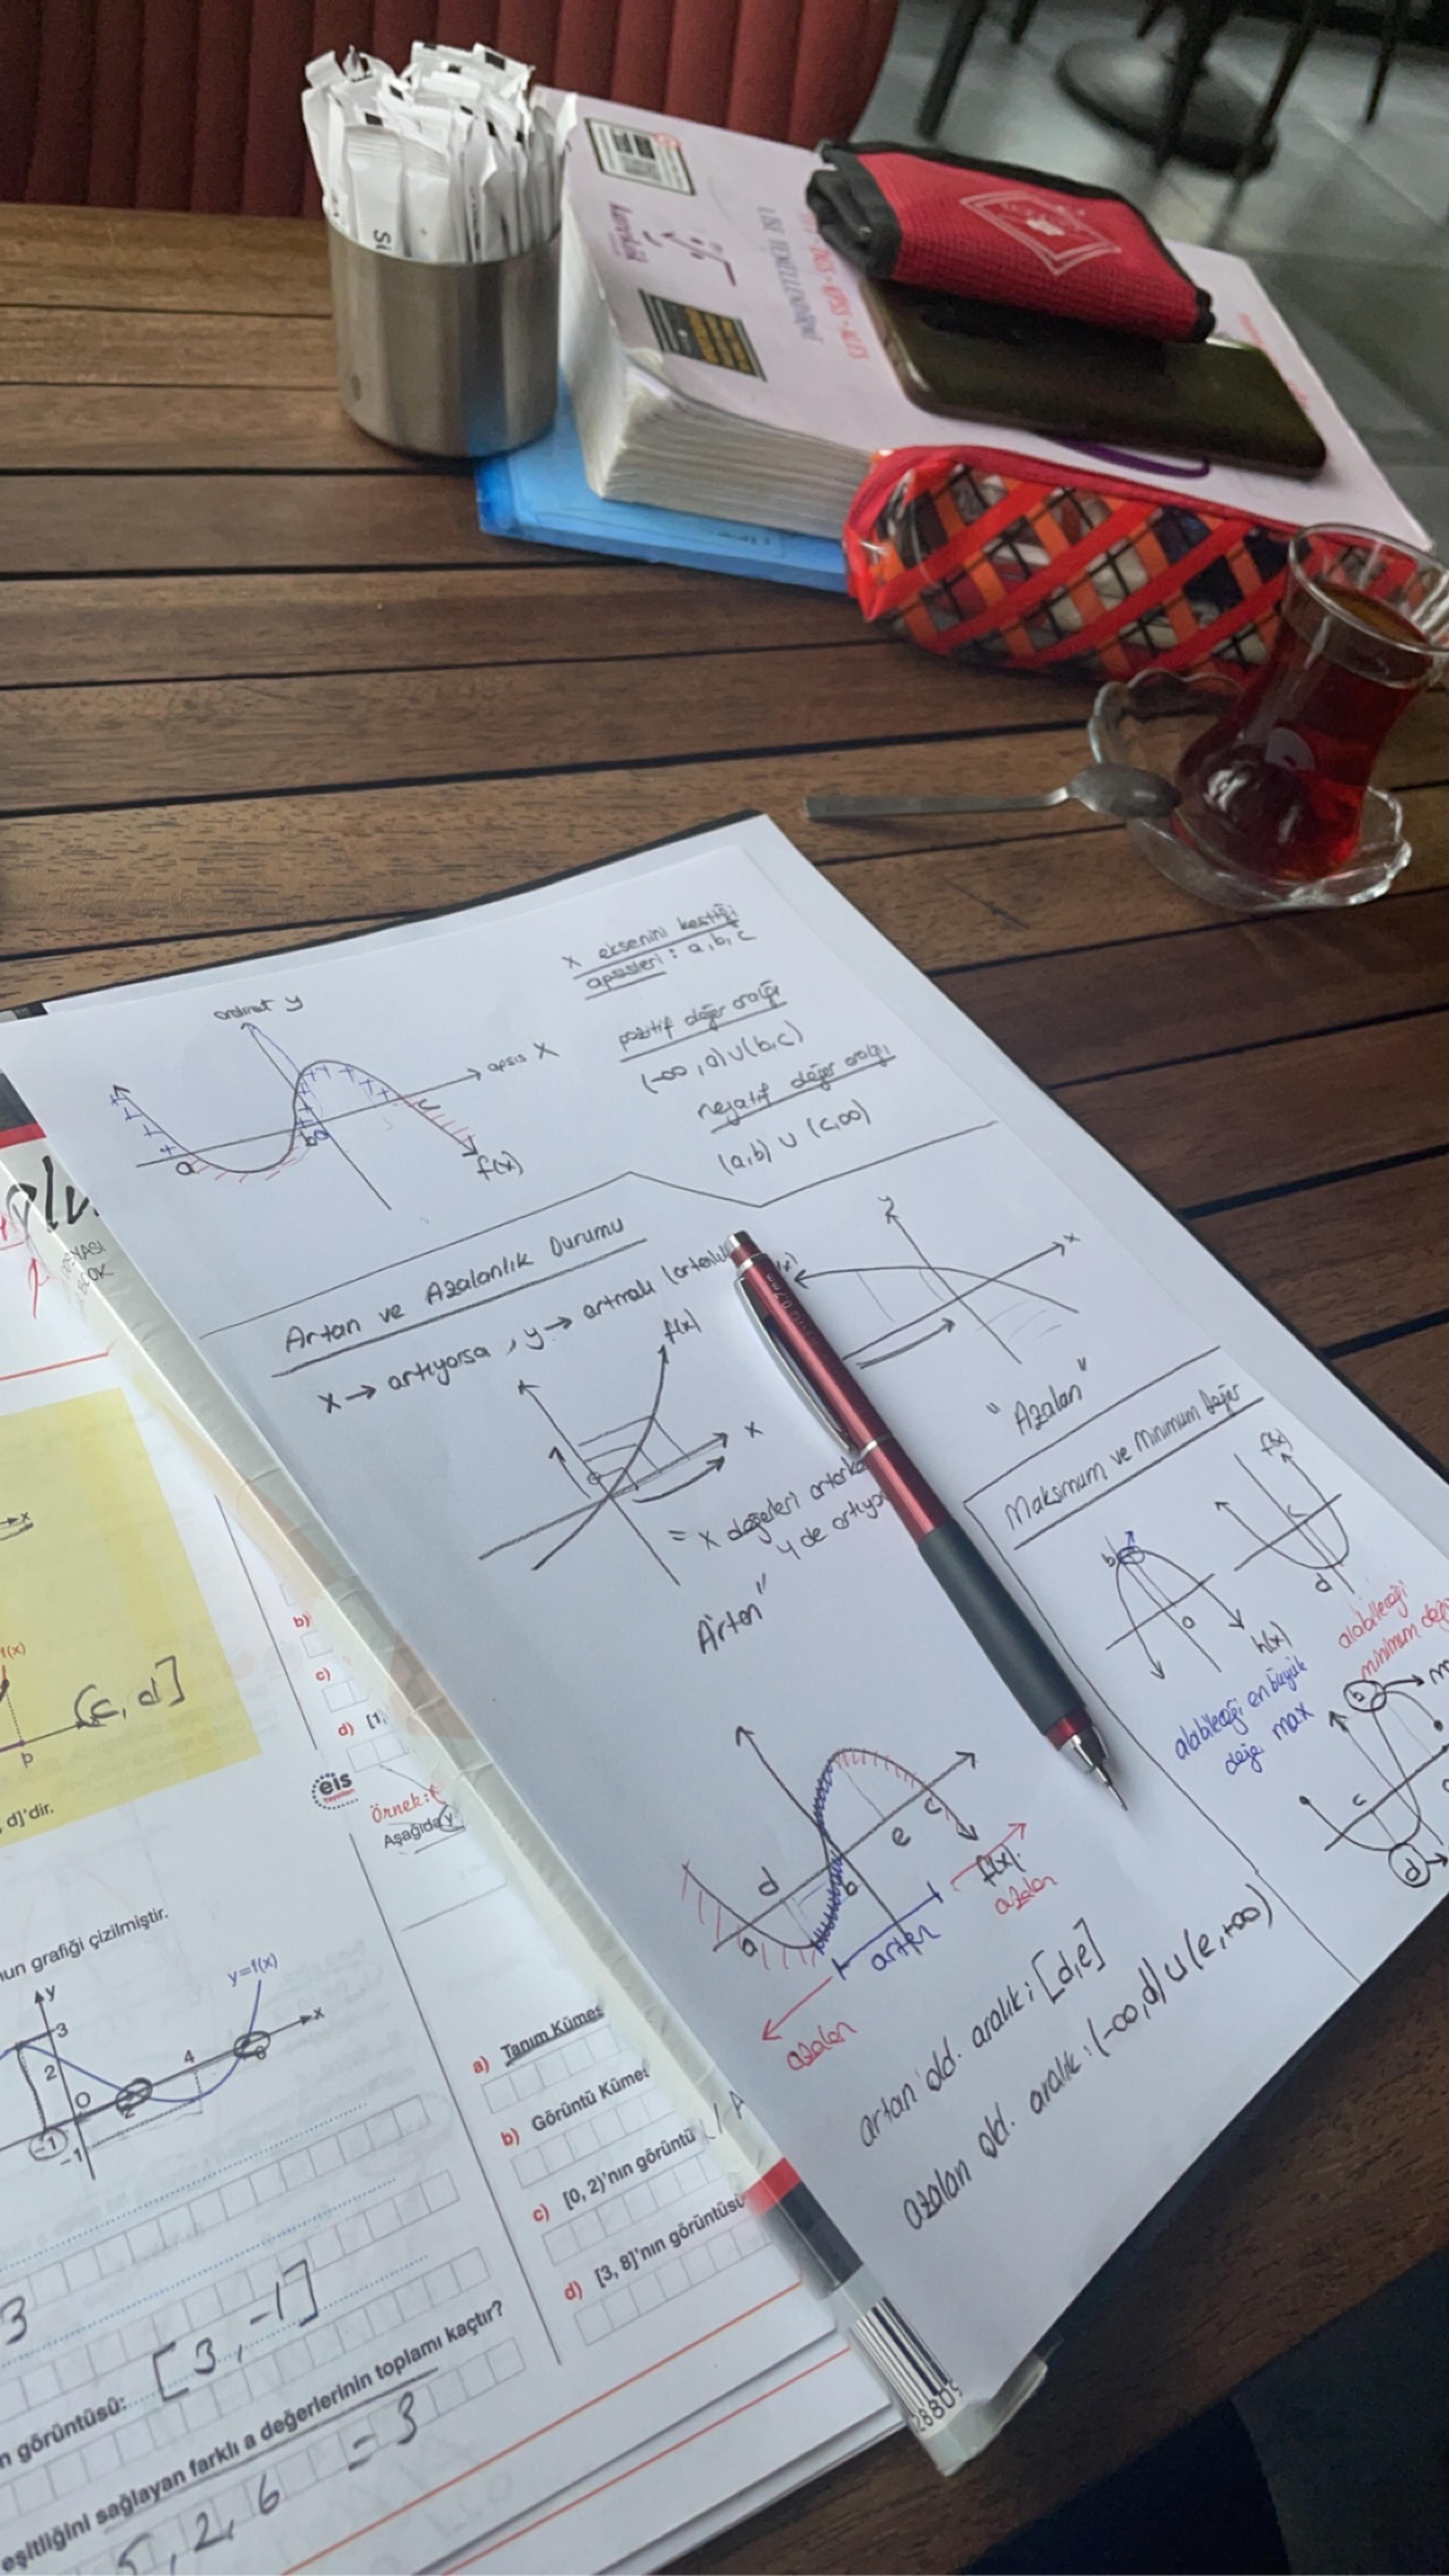 karekök
LİSE TEMELLENDİRME
DGS - KPSS - ALES
ordinat y
apsis X
a
b
c
f(x)
x eksenini kestiği
apsisleri : a, b, c
pozitif değer aralığı
(-∞, a) ∪ (b, c)
negatif değer aralığı
(a, b) ∪ (c, ∞)
Artan ve Azalanlık Durumu
x → artıyorsa, y → artmalı
f(x)
x
= x değerleri
y de
"Artan"
y
x
"Azalan"
Maksimum ve Minimum Değer
b
a
h(x)
alabileceği en büyük
değer max
f(x)
c
d
alabileceği
minimum
b
c
d
a
d
b
e
c
f(x)
azalan
artan
azalan
artan old. aralık: [d, e]
azalan old. aralık: (-∞, d) ∪ (e, +∞)
f(x)
(c, d]
d]'dir.
b)
c)
d) [1,
eis
Yayınları
Örnek:
Aşağıda y
grafiği çizilmiştir.
y
3
2
0
-1
-1
2
4
x
y=f(x)
3
görüntüsü: [3, -1]
eşitliğini sağlayan farklı a değerlerinin toplamı kaçtır?
5, 2, 6 = 3
a) Tanım Kümes
b) Görüntü Kümes
c) [0, 2)'nın görüntü
d) [3, 8]'nın görüntüsü